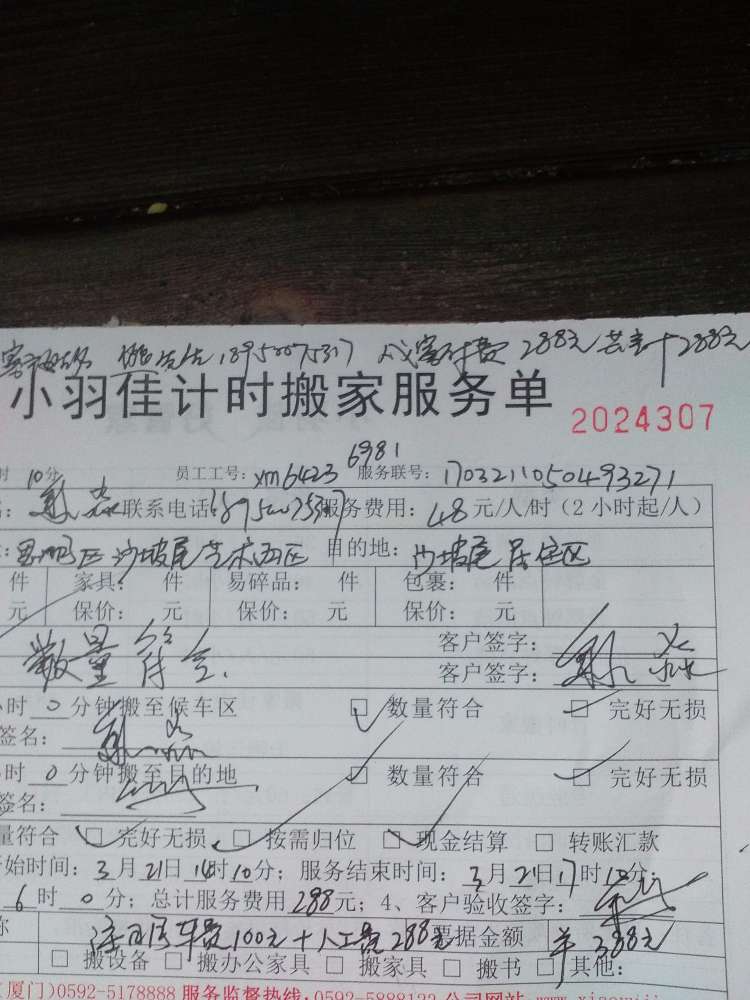 先生18950075317 288元 288元
小羽佳计时搬家服务单 2024307
时 10分 员工工号: xm6423 6981 服务联号: 170321105049327 1
联系电话 服务费用: 48元/人/时(2小时起/人)
区沙坡尾艺术西区 目的地: 沙坡尾居住区
件 家具: 件 易碎品: 件 包裹: 件
元 保价: 元 保价: 元 保价: 元
数量符合. 客户签字:
客户签字:
小时 0 分钟搬至候车区 □ 数量符合 □ 完好无损
签名:
时 0 分钟搬至目的地 □ 数量符合 □ 完好无损
签名:
量符合 □ 完好无损 □ 按需归位 □ 现金结算 □ 转账汇款
开始时间: 3月21日14时10分; 服务结束时间: 3月21日17时10分;
6时0分; 总计服务费用288元; 4、客户验收签字:
称 车费100元+人工费288元 票据金额 388元
□ 搬设备 □ 搬办公家具 □ 搬家具 □ 搬书 □ 其他:
(厦门)0592-5178888 服务监督热线:0592-5888122 公司网站: